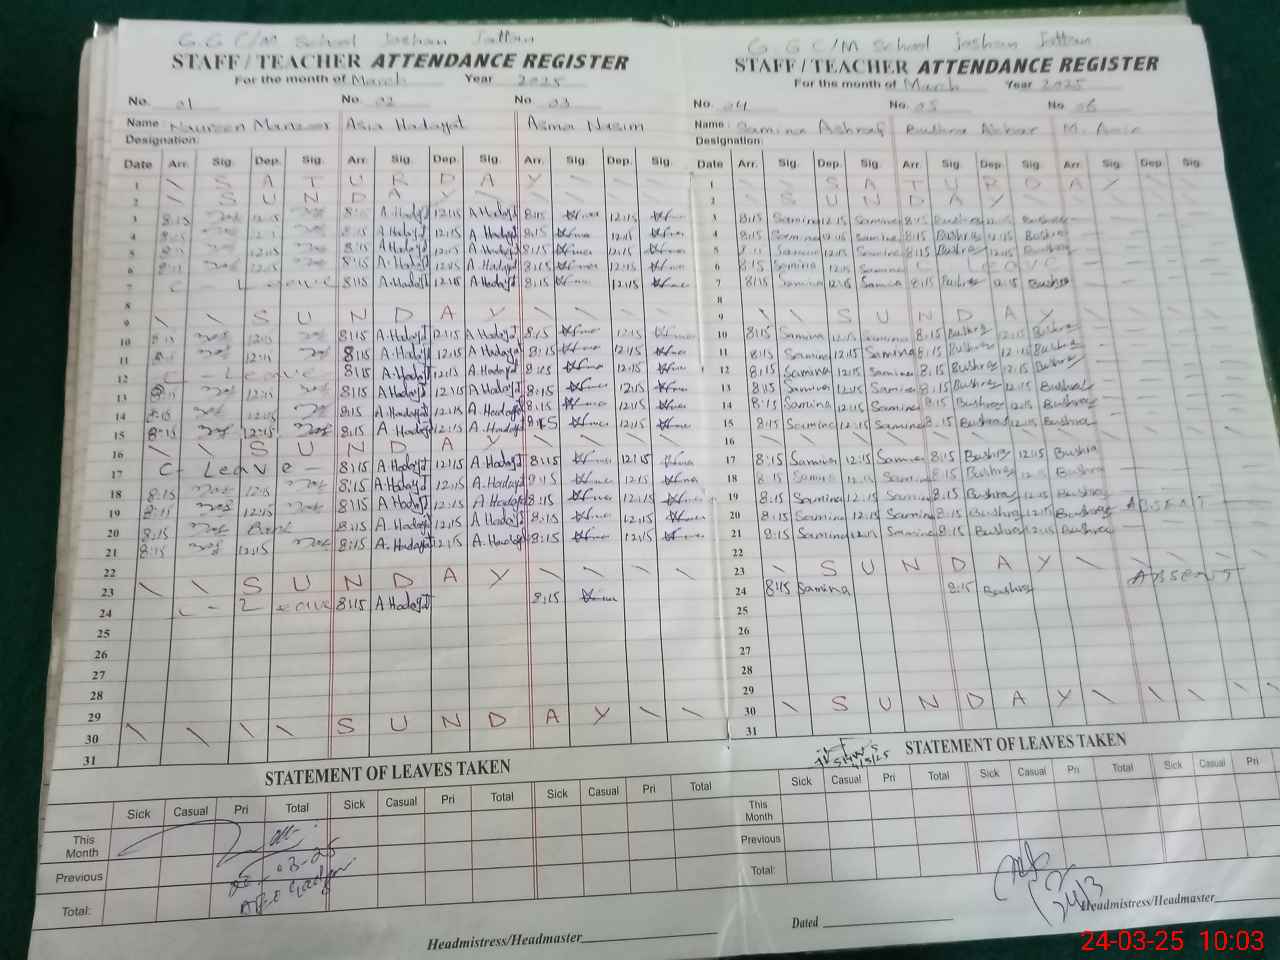 G.G C/M School Jashan Jattan
STAFF / TEACHER ATTENDANCE REGISTER
For the month of March Year 2025
No. 01 No. 02 No. 03
Name: Naureen Manzoor Asia Hadayat Asma Nasim
Designation:
Date Arr. Sig. Dep. Sig. Arr. Sig. Dep. Sig. Arr. Sig. Dep. Sig.
1 S A T U R D A Y
2 S U N D A Y
3 8:15 12:15 8:15 A.Hadayt 12:15 A.Hadayt 8:15 12:15
4 8:15 A.Hadayt 12:15 A.Hadayt 8:15 12:15
5 12:15 8:15 A.Hadayt 12:15 A.Hadayt 8:15 12:15
6 12:15 8:15 A.Hadayt 12:15 A.Hadayt 8:15 12:15
7 C - Leave 8:15 A.Hadayt 12:15 A.Hadayt 8:15 12:15
8
9 S U N D A Y
10 8:15 12:15 8:15 A.Hadayt 12:15 A.Hadayt 8:15 12:15
11 12:15 8:15 A.Hadayt 12:15 A.Hadayt 8:15 12:15
12 C - Leave 8:15 A.Hadayt 12:15 A.Hadayt 8:15 12:15
13 12:15 8:15 A.Hadayt 12:15 A.Hadayt 8:15 12:15
14 12:15 8:15 A.Hadayt 12:15 A.Hadayt 8:15 12:15
15 8:15 12:15 8:15 A.Hadayt 12:15 A.Hadayt 8:15 12:15
16 S U N D A Y
17 C - Leave - 8:15 A.Hadayt 12:15 A.Hadayt 8:15 12:15
18 8:15 12:15 8:15 A.Hadayt 12:15 A.Hadayt 8:15 12:15
19 8:15 12:15 8:15 A.Hadayt 12:15 A.Hadayt 8:15 12:15
20 8:15 8:15 A.Hadayt 12:15 A.Hadayt 8:15 12:15
21 8:15 12:15 8:15 A.Hadayt 12:15 A.Hadayt 8:15 12:15
22
23 S U N D A Y
24 C - Leave 8:15 A.Hadayt 8:15
25
26
27
28
29
30 S U N D A Y
31
STATEMENT OF LEAVES TAKEN
Sick Casual Pri Total Sick Casual Pri Total Sick Casual Pri Total
This Month
Previous
Total:
Headmistress/Headmaster
G.G C/M School Jashan Jattan
STAFF / TEACHER ATTENDANCE REGISTER
For the month of March Year 2025
No. 04 No. 05 No. 06
Name: Samina Ashraf Bushra Akbar M. Amir
Designation:
Date Arr. Sig. Dep. Sig. Arr. Sig. Dep. Sig. Arr. Sig. Dep. Sig.
1 S A T U R D A Y
2 S U N D A Y
3 8:15 Samina 12:15 Samina 8:15 Bushra 12:15 Bushra
4 8:15 Samina 12:15 Samina 8:15 Bushra 12:15 Bushra
5 Samina 12:15 Samina 8:15 Bushra 12:15 Bushra
6 8:15 Samina 12:15 Samina C - Leave
7 8:15 Samina 12:15 Samina 8:15 Bushra 12:15 Bushra
8
9 S U N D A Y
10 8:15 Samina 12:15 Samina 8:15 Bushra 12:15 Bushra
11 8:15 Samina 12:15 Samina 8:15 Bushra 12:15 Bushra
12 8:15 Samina 12:15 Samina 8:15 Bushra 12:15 Bushra
13 8:15 Samina 12:15 Samina 8:15 Bushra 12:15 Bushra
14 8:15 Samina 12:15 Samina 8:15 Bushra 12:15 Bushra
15 8:15 Samina 12:15 Samina 8:15 Bushra 12:15 Bushra
16
17 8:15 Samina 12:15 Samina 8:15 Bushra 12:15 Bushra
18 8:15 Samina 12:15 Samina 8:15 Bushra 12:15 Bushra
19 8:15 Samina 12:15 Samina 8:15 Bushra 12:15 Bushra
20 8:15 Samina 12:15 Samina 8:15 Bushra 12:15 Bushra ABSENT
21 8:15 Samina 12:15 Samina 8:15 Bushra 12:15 Bushra
22
23 S U N D A Y
24 8:15 Samina 8:15 Bushra ABSENT
25
26
27
28
29
30 S U N D A Y
31
STATEMENT OF LEAVES TAKEN
Sick Casual Pri Total Sick Casual Pri Total Sick Casual Pri
This Month
Previous
Total:
Headmistress/Headmaster
Dated
24-03-25 10:03